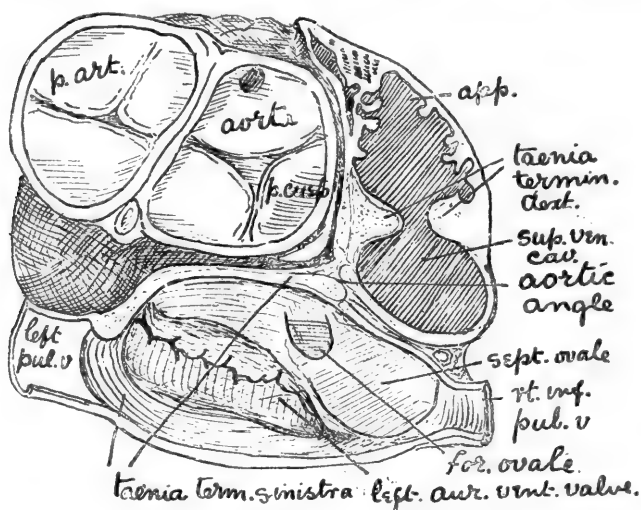 p. art.
aorta
p. cusp
app.
taenia
termin.
dext.
sup. ven.
cav.
aortic
angle
left
pul. v
sept. ovale
rt. inf.
pul. v
for. ovale
taenia term. sinistra
left. aur. vent. valve.